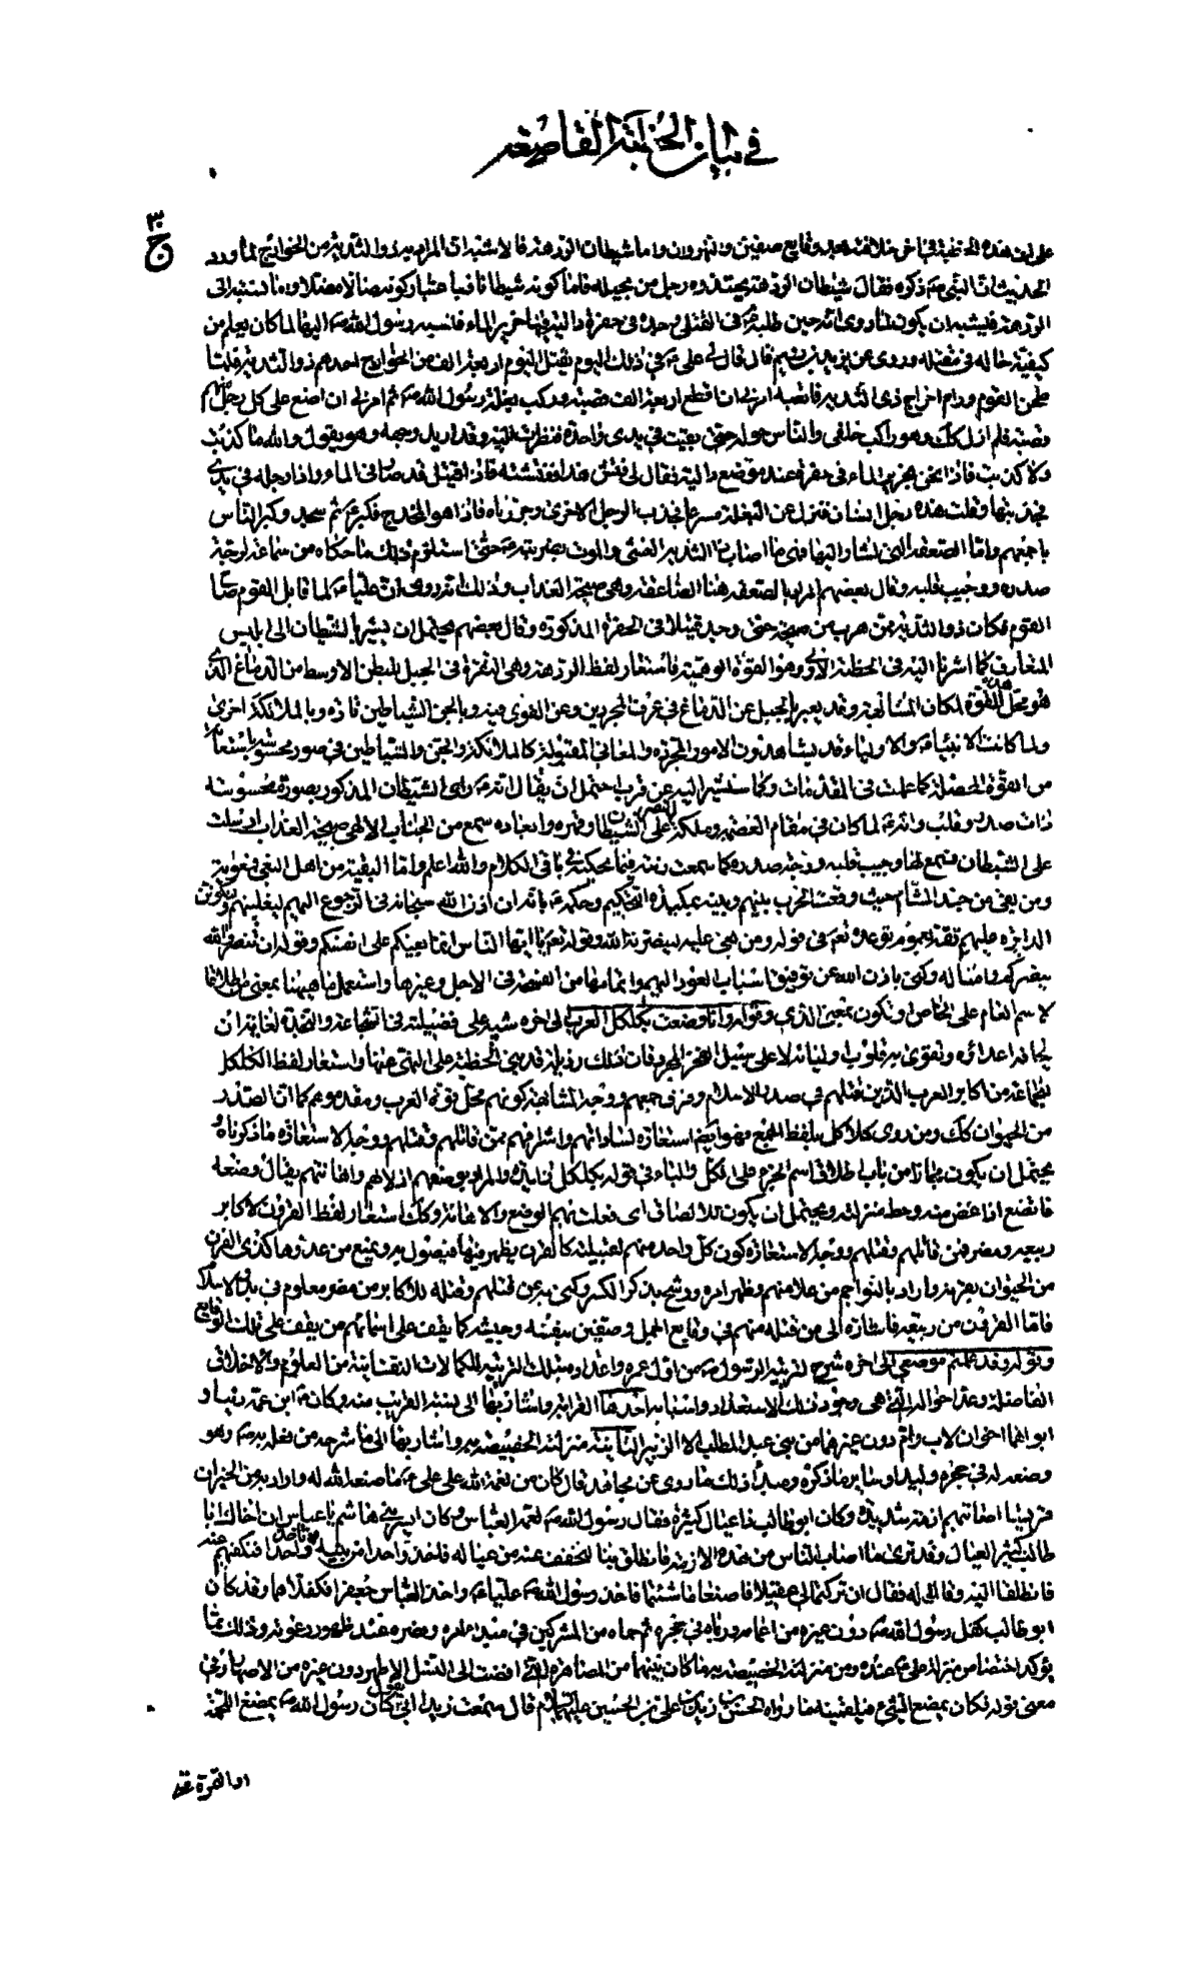 في بيان الخطبة القاصعة
ج ٣
على ان هذه الخطبة في اخر خلافته بعد وقايع صفين والنهروان واما شيطان الردهة فالاشبه ان المراد به ذو الثدية من الخوارج لما ورد
الحديث ان النبي ص ذكره فقال شيطان الردهة يحتدره رجل من بجيلة فاما كونه شيطانا فباعتبار كونه ضالا مضلا واما نسبته الى
الردهة فيشبه ان يكون لما روى انه حين طلبه في القتلى وجده في حفرة دالية فيها خرير الماء فنسبه رسول الله ص اليها لما كان يعلم من
كيفية حاله في مقتله وروى عن يزيد بن رويم قال قال لي علي ع في ذلك اليوم يقتل اليوم اربعة الف من الخوارج احدهم ذو الثدية فلما
طحن القوم ورام اخراج ذي الثدية فاتعبه امرني ان اقطع اربعة الف قصبة وركب بغلة رسول الله ص ثم امرني ان اضع على كل رجل منهم
قصبة فلم ازل كك وهو راكب خلفي والناس حوله حتى بقيت في يدي واحدة فنظرت اليه وقد اربد وجهه وهو يقول والله ما كذبت
ولا كذبت فاذا نحن بخرير ماء في حفرة عند موضع دالية فقال لي فتش هذا ففتشته فاذا قتيل قد صار في الماء واذا رجله في يدي
فجذبتها وقلت هذه رجل انسان فنزل عن البغلة مسرعا فجذب الرجل الاخرى وجررناه فاذا هو المخدج فكبر ع ثم سجد وكبر الناس
باجمعهم واما الصعقة التي اشار اليها فهي ما اصاب ذا الثدية من الغشى والموت بضربته ع حتى استلزم ذلك ما حكاه من سماعه لرجة
صدره ووجيب قلبه وقال بعضهم المراد بالصعقة هنا الصاعقة وهي صيحة العذاب وذلك انه روى ان عليا ع لما قابل القوم صاح
القوم فكان ذو الثدية ممن هرب من صيحته حتى وجد قتيلا في الحفرة المذكورة وقال بعضهم يحتمل ان يشير بالشيطان الى ابليس
المتعارف كما اشرنا اليه في الخطبة الاولى وهو القوة الوهمية فاستعار لفظ الردهة وهي النقرة في الجبل للبطن الاوسط من الدماغ الذي
هو محل هذه القوة لمكان المشابهة وقد يعبر بالجبل عن الدماغ في عرف المجردين وعن القوى فيه بالجن والشياطين تارة وبالملائكة اخرى
ولما كانت الانبياء والاولياء قد يشاهدون الامور المجردة والمعاني المعقولة كالملائكة والجن والشياطين في صور محسوسة باستعانة
من القوة المحصلة كما علمت في المقدمات وكما سنشير اليه عن قرب احتمل ان يقال انه ع راى الشيطان المذكور بصورة محسوسة
ذات صدر وقلب وانه ع لما كان في مقام العصمة وملكة النصر على الشيطان وقهره وابعاده سمع من الجناب الالهي صيحة العذاب ارسلت
على الشيطان فسمع لها وجيب قلبه ورجة صدره كما سمعت رنته فيما يحكيه في باقي الكلام والله اعلم واما البقية من اهل البغي فمعوية
ومن بقى من جند الشام حيث وقعت الحرب بينهم وبينه بمكيدة التحكيم وحكمه ع بانه ان اذن الله سبحانه في الرجوع اليهم ليغلبنهم وتكون
الدايرة عليهم ثقة بعموم توعده تعالى في قوله ومن بغي عليه لينصرنه الله وقوله تعالى يا ايها الناس انما بغيكم على انفسكم وقوله ان تنصروا الله
ينصركم وامثاله وكنى باذن الله عن توفيق اسباب العود اليهم واتمامها من الفسحة في الاجل وغيرها واستعمل ما هيهنا بمعنى من اطلاقا
لاسم العام على الخاص او تكون بمعنى الذي وقوله انا وضعت بكلكل العرب الى اخره تنبيه على فضيلته في الشجاعة والنجدة لغاية ان
يخافه اعدائه وتقوى به قلوب اوليائه لا على سبيل الفخر المجرد فان ذلك رذيلة قد بنى الخطبة على النهي عنها واستعار لفظ الكلكل
لجماعة من اكابر العرب الذين قتلهم في صدر الاسلام وفرق جمعهم ووجه المشابهة كونهم محل قوة العرب ومقدموهم كما ان الصدر
من الحيوان كك ومن روى كلاكل بلفظ الجمع فهو ايضا استعارة لساداتهم واشرافهم ممن قاتلهم وقتلهم ووجه الاستعارة ما ذكرناه
يحتمل ان يكون مجازا من باب اطلاق اسم الجزء على الكل والباء في قوله بكلكل زائدة والمراد بوضعهم اذلالهم واهانتهم يقال وضعه
فاتضع اذا غض منه وحط منزلته ويحتمل ان يكون للالصاق اى فعلت بهم الوضع والاهانة وكك استعار لفظ القرون لاكابر
ربيعة ومضر ممن قاتلهم وقتلهم ووجه الاستعارة كون كل واحد منهم لقبيلته كالقرن يظهر فيها فيصول به ويمتنع من عدوها كذى القرن
من الحيوان بقرنه واراد بالنواجم من علا منهم وظهر امره ورشح بذكر الكسر وكنى به عن قتلهم وقتله للاكابر من مضر معلوم في بدو الاسلام
فاما القرون من ربيعة فاشارة الى من قتله منهم في وقايع الجمل وصفين بنفسه وجيشه كما يقف على اسمائهم من يقف على تلك الوقايع
وقوله وقد علمتم موضعي الى اخره شرح لتربية الرسول ص من اول عمره واعداده بتلك التربية للكمالات النفسانية من العلوم والاخلاق
الفاضلة وعد احواله التي هي وجوه ذلك الاستعداد واسبابه احدها القرابة واشار بها الى نسبته القريب منه وكان ع ابن عمه دنيا و
ابواهما اخوان لاب وام دون غيرهما من بني عبد المطلب الا الزبير الثانية منزلته الخصيصة به واشار بها الى ما شرحه من فعله به ص وهو
وضعه له في حجره وليدا وساير ما ذكره وصدر ذلك ما روى عن مجاهد قال كان من نعمة الله على علي ع ما صنعه الله له واراد به من الخير ان
قريشا اصابتهم ازمة شديدة وكان ابو طالب ذا عيال كثيرة فقال رسول الله ص لعمه العباس وكان ايسر بني هاشم يا عباس ان اخاك ابا
طالب كثير العيال وقد ترى ما اصاب الناس من هذه الازمة فانطلق بنا لنخفف عنه من عياله فاخذ واحدا من بنيه وتاخذ واحدا فنكفهم عنه
فانطلقا اليه وقالا له فقال ان تركتما لي عقيلا فاصنعا ما شئتما فاخذ رسول الله ص عليا ع واخذ العباس جعفرا فكفلاهما وقد كان
ابو طالب كفل رسول الله ص دون غيره من اعمامه ورباه في حجره ثم حماه من المشركين في مبدء امره ونصره عند ظهور دعوته وذلك مما
يؤكد اختصاص منزلة علي ع عنده ومن منزلته الخصيصة به ما كان بينهما من المصاهرة التي افضت الى النسل الاطهر دون غيره من الاصهار وفي
معنى قوله وكان يمضغ الشيء ثم يلقمنيه ما رواه الحسن بن زيد بن علي بن الحسين عليهم السلام قال سمعت زيدا ابي يقول كان رسول الله ص يمضغ اللحمة
او التمرة حتى